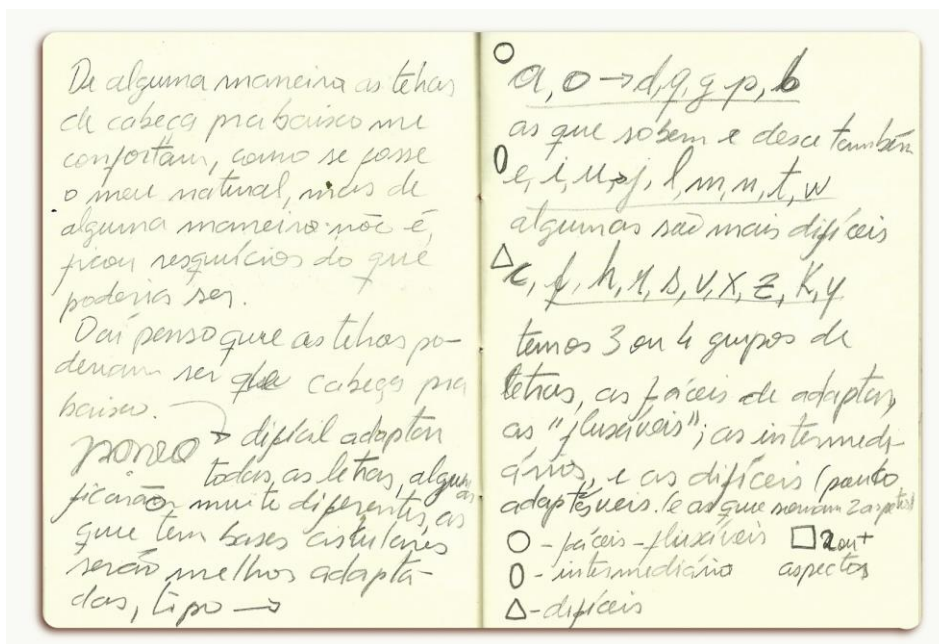 De alguma maneira as letras
de cabeça pra baixo me
confortam, como se fosse
o meu natural, mas de
alguma maneira não é,
ficou resquícios do que
poderia ser.
Daí penso que as letras po-
deriam ser de cabeça pra
baixo.
→ difícil adaptar
todas as letras, algumas
ficarão muito diferentes, as
que tem bases
serão melhor adapta-
das, tipo →
a, o → d, q, g p, b
as que sobem e desce também
e, i, u, j, l, m, n, t, w
algumas são mais difíceis
c, f, h, r, s, v, x, z, k, y
temos 3 ou 4 grupos de
letras, as fáceis de adaptar,
as "fluxáveis"; as intermedi-
ários, e as difíceis (pouco
adaptáveis. (e as que somam 2 aspetos)
○ - fáceis - fluxáveis □ 2 ou +
0 - intermediário aspectos
△ - difíceis